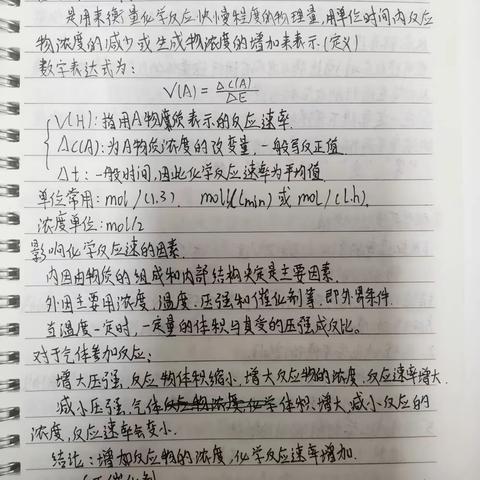 是用来衡量化学反应快慢程度的物理量,用单位时间内反应
物浓度的减少或生成物浓度的增加来表示.(定义)
数字表达式为:
V(A) = ΔC(A)/ΔE
V(H):指用A物质表示的反应速率.
ΔC(A):为A物质浓度的改变量,一般写反正值.
Δt:一般时间,因此化学反应速率为平均值.
单位常用:mol/(1.3). mol/(Lmin) 或 mol/(L.h).
浓度单位:mol/2
影响化学反应速的因素.
内因由物质的组成和内部结构决定是主要因素.
外因主要用浓度、温度、压强和催化剂等,即外界条件.
当温度一定时,一定量的体积与其受的压强成反比。
对于气体参加反应:
增大压强,反应物体积缩小,增大反应物的浓度,反应速率增大.
减小压强,气体体积增大,减小反应的
浓度,反应速率会变小.
结论:增加反应物的浓度,化学反应速率增加.